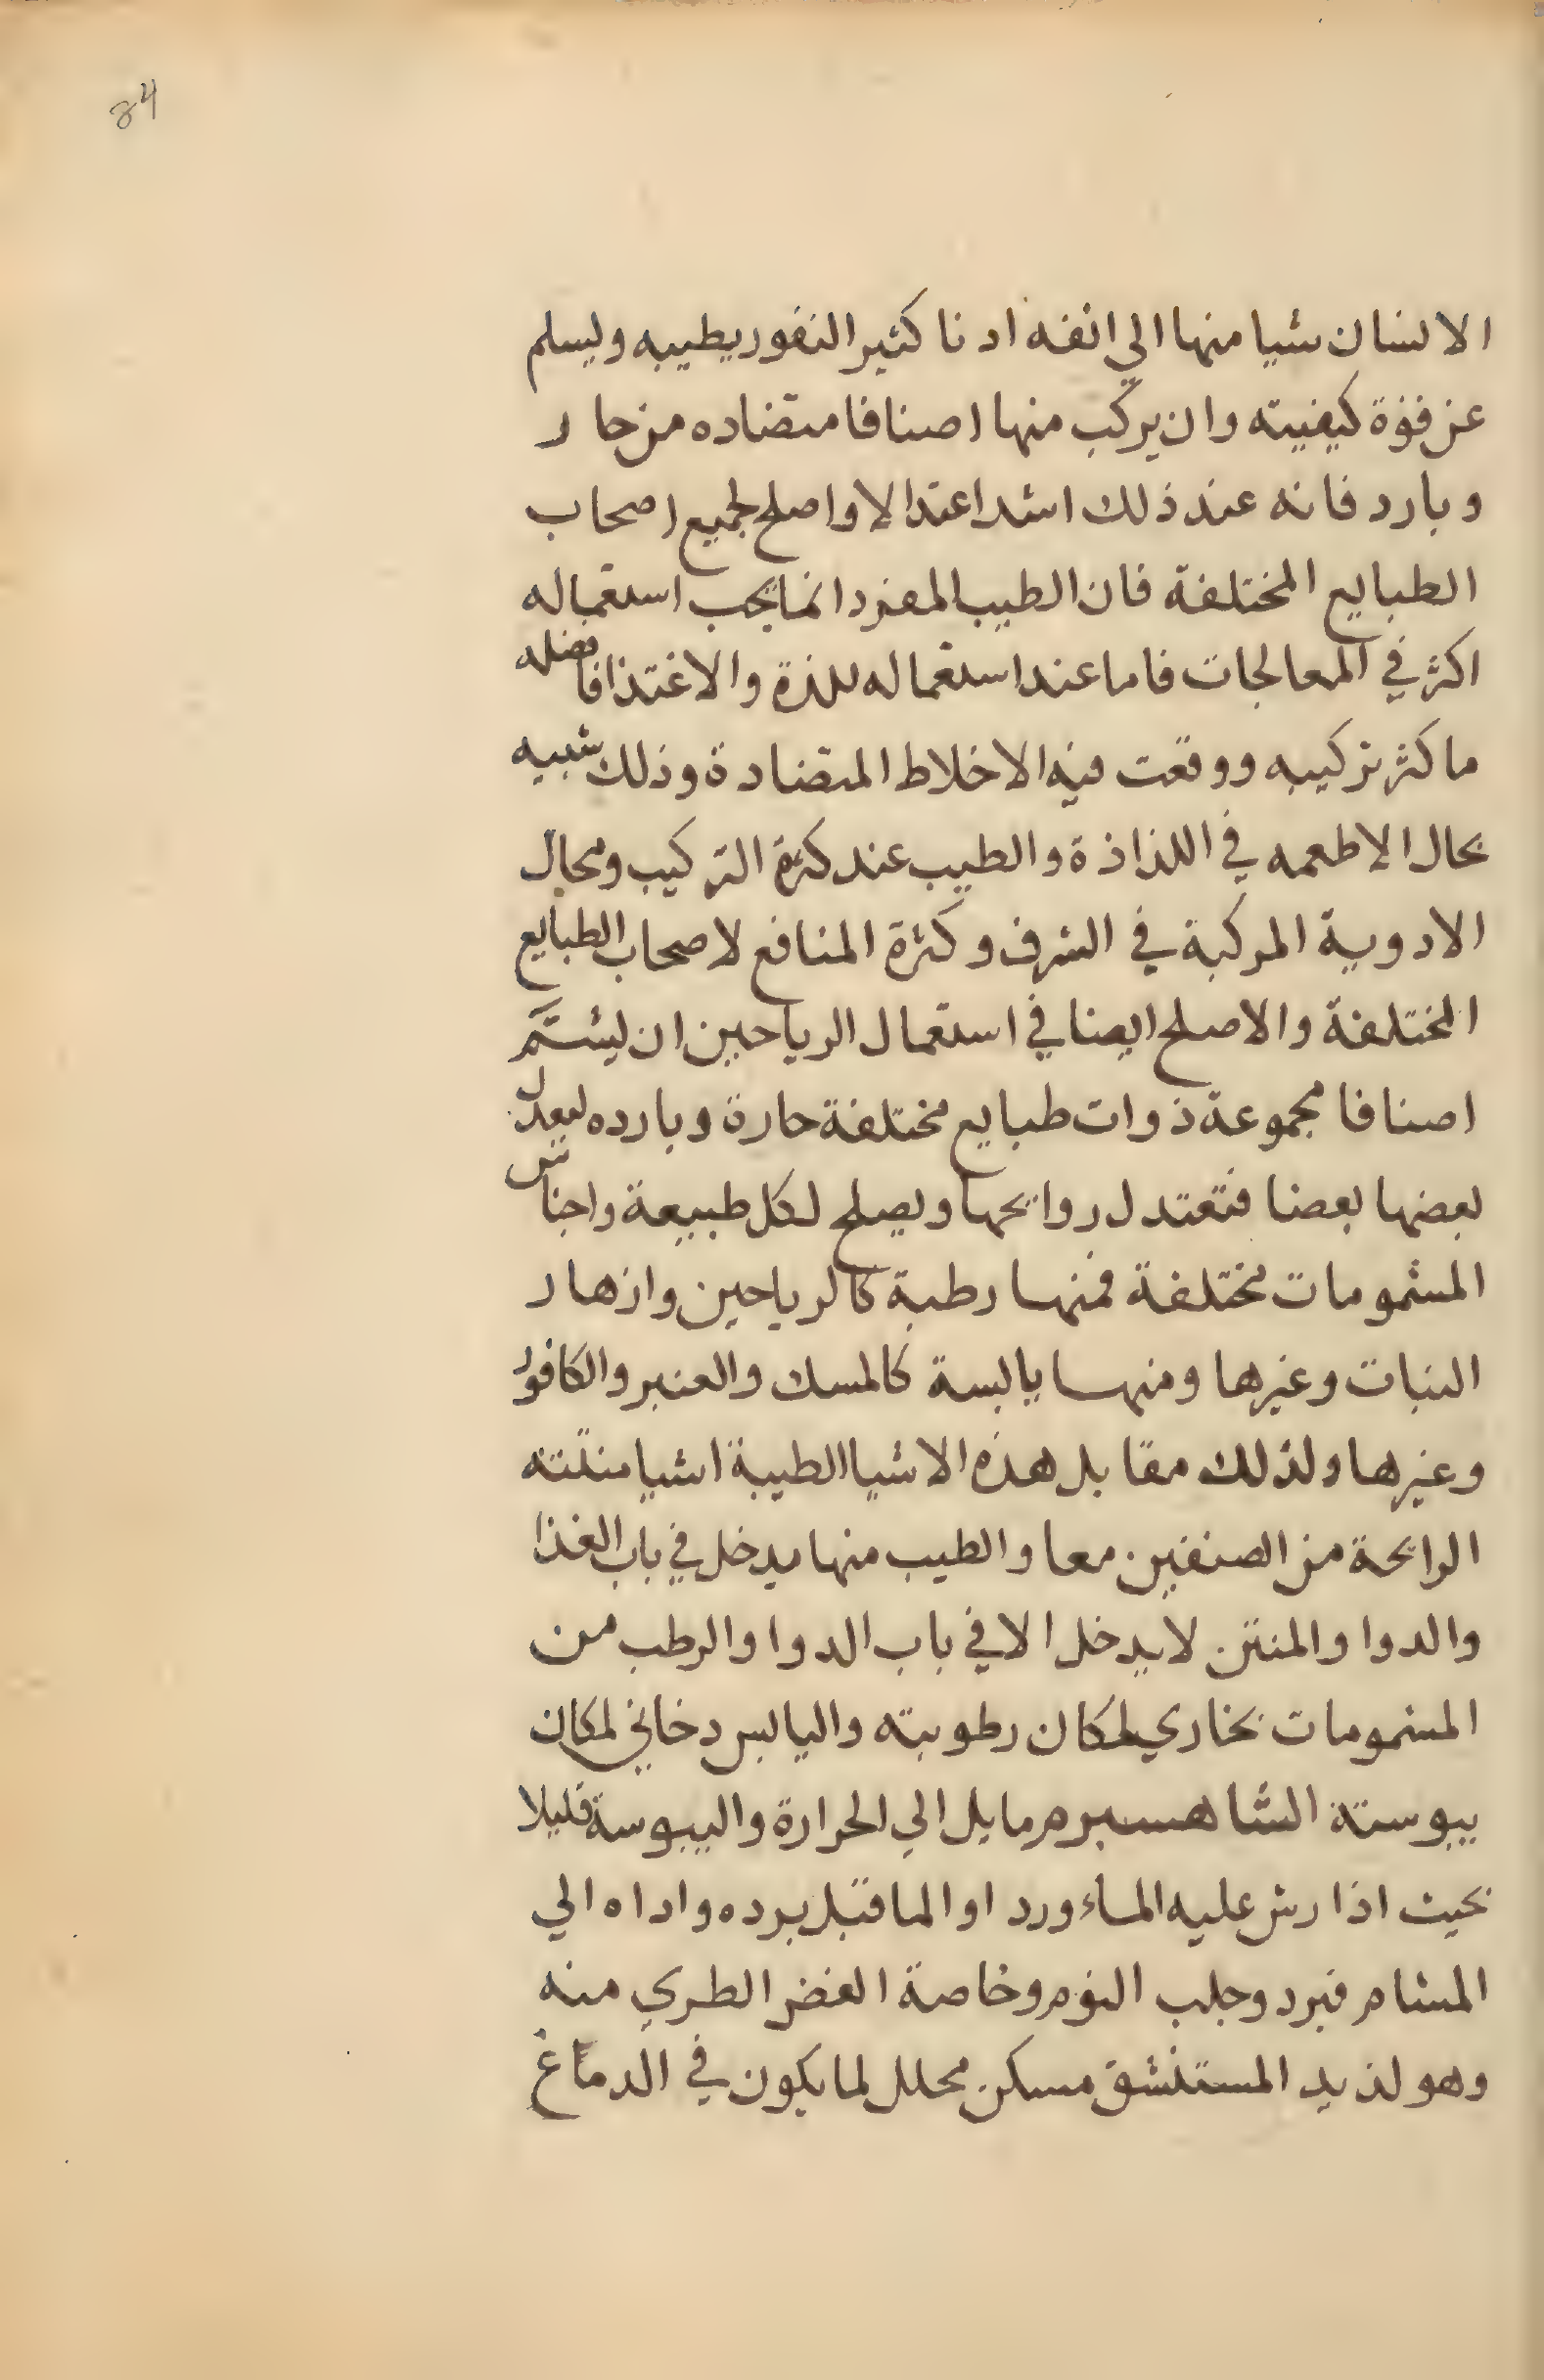 84
الانسان شيا منها الي انفه ادنا كثير النفور يطيبه وليسلم
عن قوة كيفيته وان يركب منها اصنافا متضاده من حار
وبارد فانه عند ذلك اشد اعتدالا واصلح لجميع اصحاب
الطبايع المختلفة فان الطيب المفرد انما يجب استعماله
اكثر في المعالجات فاما عند استعماله للذة والاغتذا فافضله
ما كثر تركيبه ووقعت فيه الاخلاط المتضادة وذلك شبيه
بحال الاطعمه في اللذاذة والطيب عند كثرة التركيب وبحال
الادوية المركبة في الشرف وكثرة المنافع لاصحاب الطبايع
المختلفة والاصلح ايضا في استعمال الرياحين ان يشتَم
اصنافا مجموعة ذوات طبايع مختلفة حارة وبارده ليعدل
بعضها بعضا فتعتدل روايحها ويصلح لكل طبيعة واجناس
المشمومات مختلفة فمنها رطبة كالرياحين وازهار
النبات وغيرها ومنها يابسة كالمسك والعنبر والكافور
وغيرها ولذلك مقابل هذه الاشيا الطيبة اشيا منتنه
الرايحة من الصنفين معا والطيب منها يدخل في باب الغذا
والدوا والمنتن لا يدخل الا في باب الدوا والرطب من
المشمومات بخاري لمكان رطوبته واليابس دخاني لمكان
يبوسته الشاهسبرم مايل الي الحرارة واليبوسة قليلا
بحيث اذا رش عليه الماء ورد او الما قبل برده واداه الي
المشام فبرد وجلب النوم وخاصة الغض الطري منه
وهو لذيد المستنشق مسكن محلل لما يكون في الدماغ